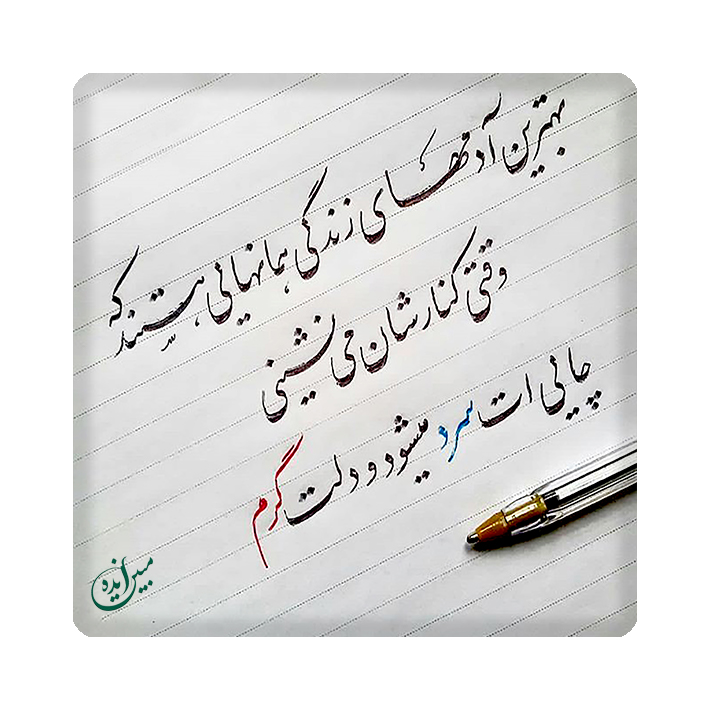 بهترین آدمهای زندگی همانهایی هستند که
وقتی کنارشان می نشینی
چایی ات سرد میشود و دلت گرم
مبین ایده